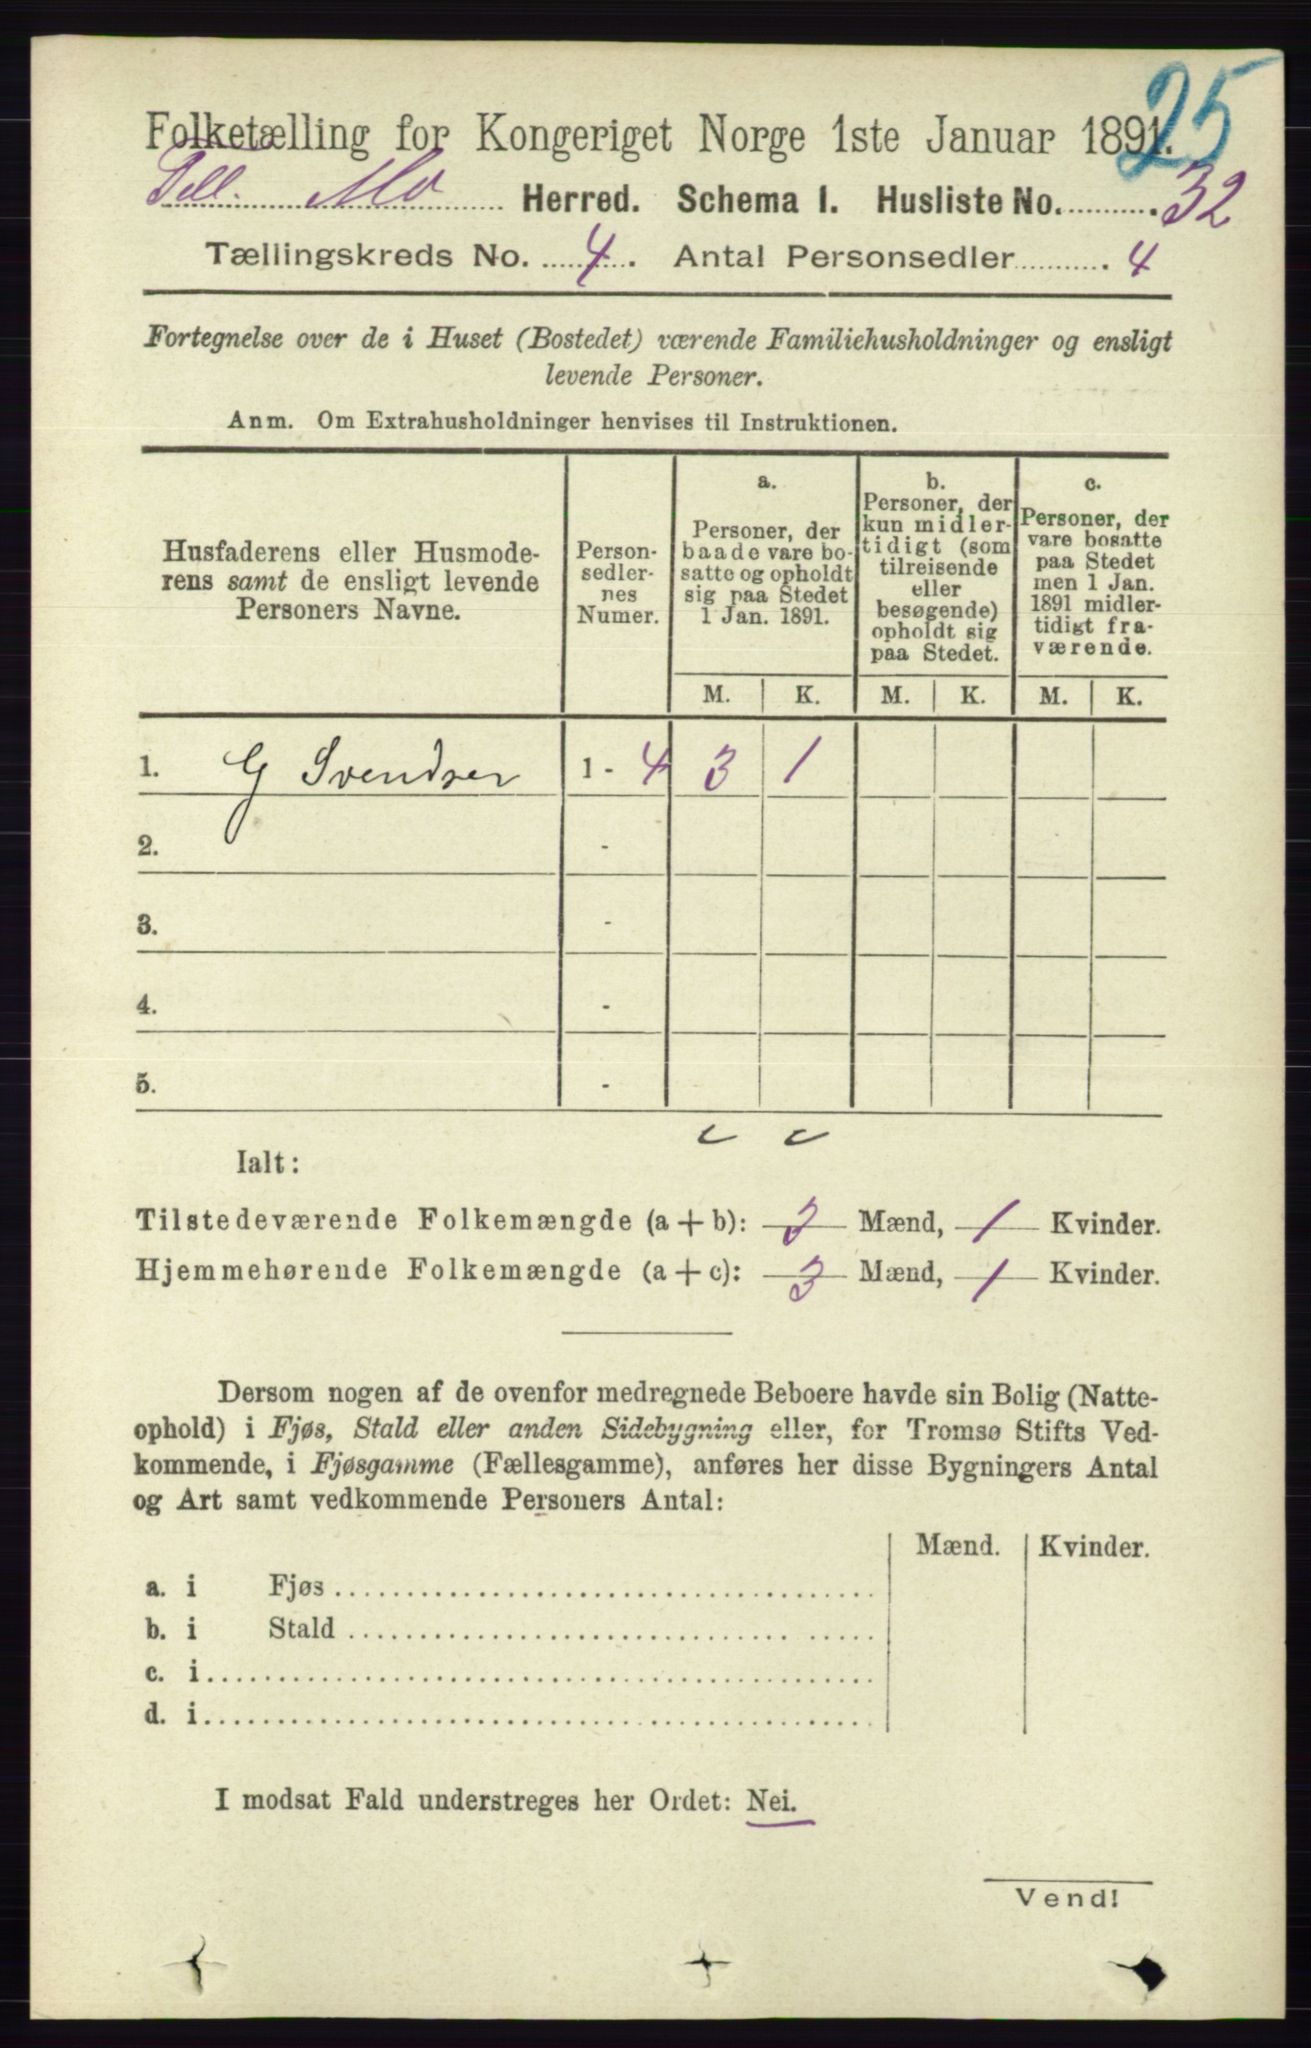 25
Folketælling for Kongeriget Norge 1ste Januar 1891.
Mo Herred. Schema I. Husliste No. 32
Tællingskreds No. 4. Antal Personsedler 4
Fortegnelse over de i Huset (Bostedet) værende Familiehusholdninger og ensligt
levende Personer.
Anm. Om Extrahusholdninger henvises til Instruktionen.
Husfaderens eller Husmode-
rens samt de ensligt levende
Personers Navne.
Person-
sedler-
nes
Numer.
a.
Personer, der
baade vare bo-
satte og opholdt
sig paa Stedet
1 Jan. 1891.
b.
Personer, der
kun midler-
tidigt (som
tilreisende
eller
besøgende)
opholdt sig
paa Stedet.
c.
Personer, der
vare bosatte
paa Stedet
men 1 Jan.
1891 midler-
tidigt fra-
værende.
M. K. M. K. M. K.
1. G Svendsen 1 - 4 3 1
2. -
3. -
4. -
5. -
Ialt:
Tilstedeværende Folkemængde (a + b): 3 Mænd, 1 Kvinder.
Hjemmehørende Folkemængde (a + c): 3 Mænd, 1 Kvinder.
Dersom nogen af de ovenfor medregnede Beboere havde sin Bolig (Natte-
ophold) i Fjøs, Stald eller anden Sidebygning eller, for Tromsø Stifts Ved-
kommende, i Fjøsgamme (Fællesgamme), anføres her disse Bygningers Antal
og Art samt vedkommende Personers Antal:
Mænd. Kvinder.
a. i Fjøs
b. i Stald
c. i
d. i
I modsat Fald understreges her Ordet: Nei.
Vend!